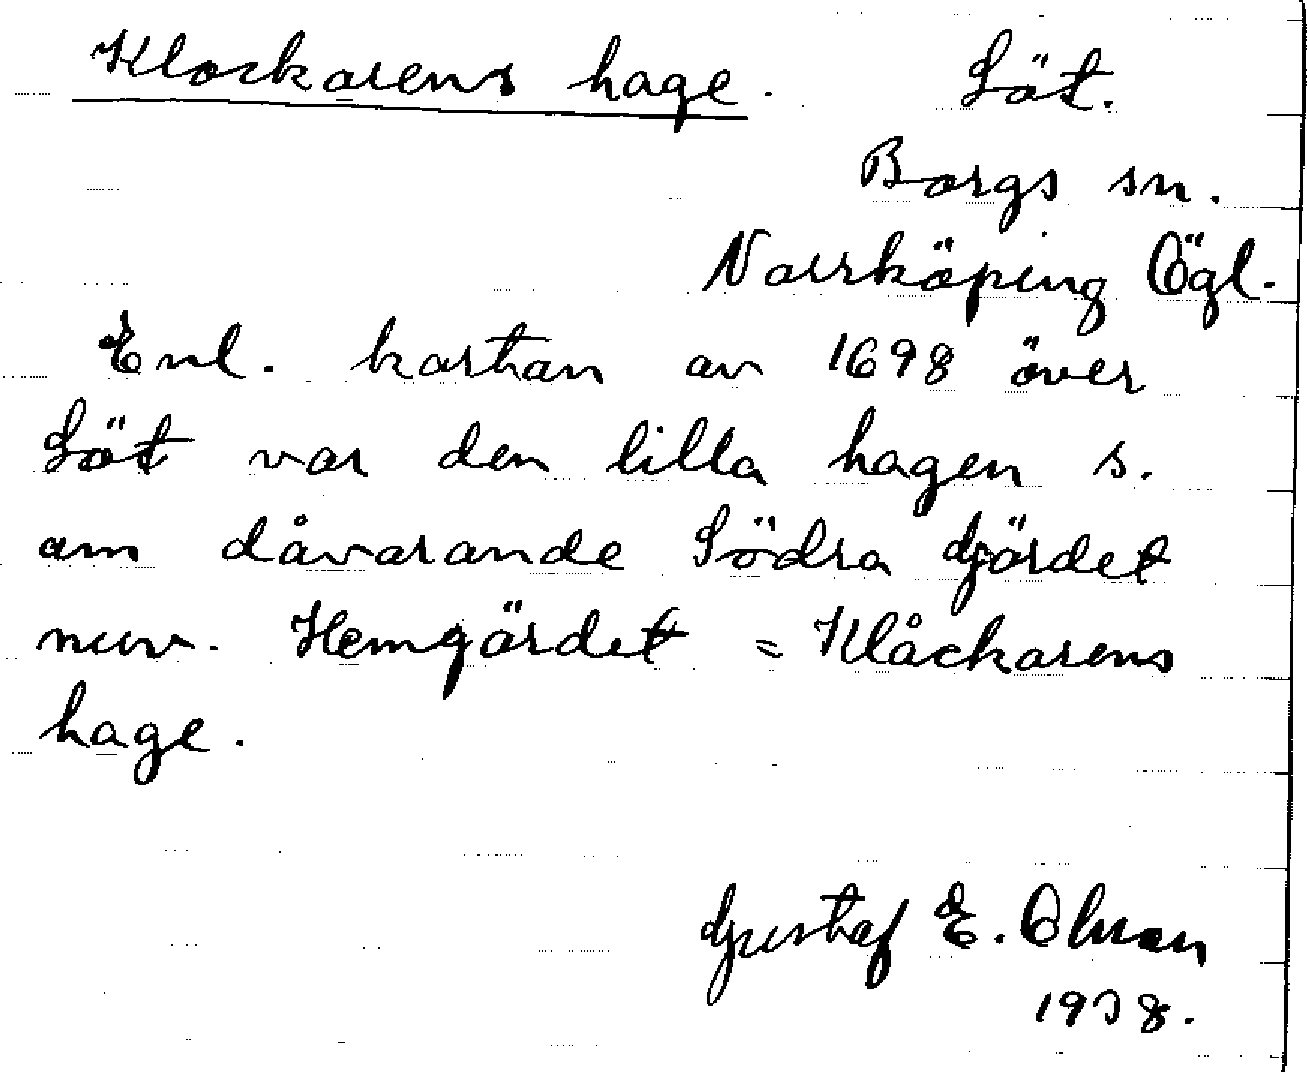 Klockarens hage. Löt.
Borgs sn.
Norrköping Ögl.
Enl. kartan av 1698 över
Löt var den lilla hagen s.
om dåvarande Södra Gärdet
nuv. Hemgärdet = Klåckarens
hage.
Gustaf E. Olson
1938.